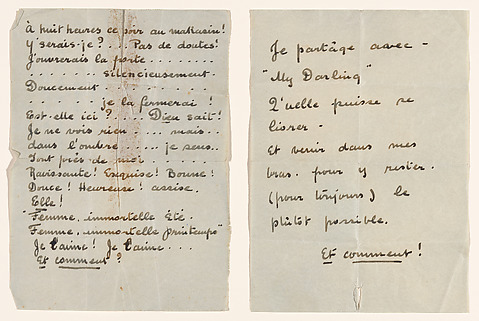 À huit heures ce soir au makasin!
Y serais-je?... Pas de doutes!
J'ouvrerais la porte........
........ silencieusement.
Doucement........
........ je la fermerai!
Est-elle ici?.... Dieu sait!
Je ne vois rien.... mais..
dans l'ombre..... je sens..
Tout près de moi........
Ravissante! Exquise! Bonne!
Douce! Heureuse! assise.
Elle!
"Femme, immortelle Été.
Femme, immortelle printemps"
Je l'aime! Je l'aime...
Et comment?
Je partage avec-
"My Darling"
Qu'elle puisse se
lisser-
Et venir dans mes
bras. pour y rester.
(pour toujours) le
plûtot possible.
Et comment!